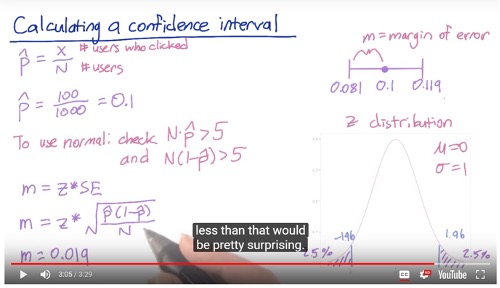 Calculating a confidence interval
p̂ = X/N # users who clicked
# users
p̂ = 100/1000 = 0.1
To use normal: check N·p̂ > 5
and N(1-p̂) > 5
m = Z * SE
m = Z * √(p̂(1-p̂)/N)
m = 0.019
m = margin of error
0.081 0.1 0.119
Z distribution
μ=0
σ=1
-1.96 1.96
2.5% 2.5%
less than that would
be pretty surprising,
3:05 / 3:29
CC
YouTube